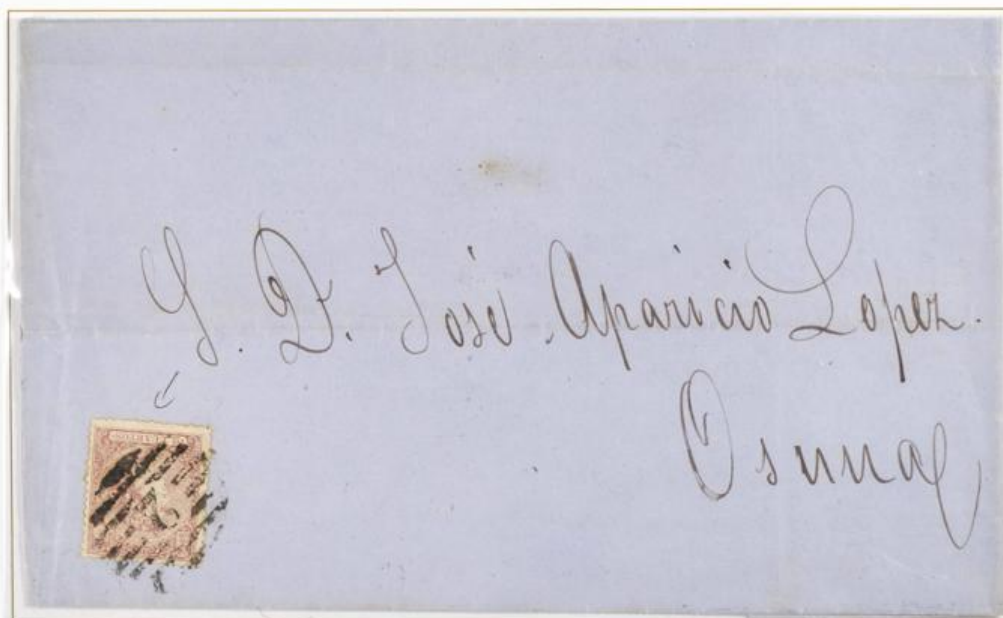 S. D. José Aparicio Lopez.
Osuna
2